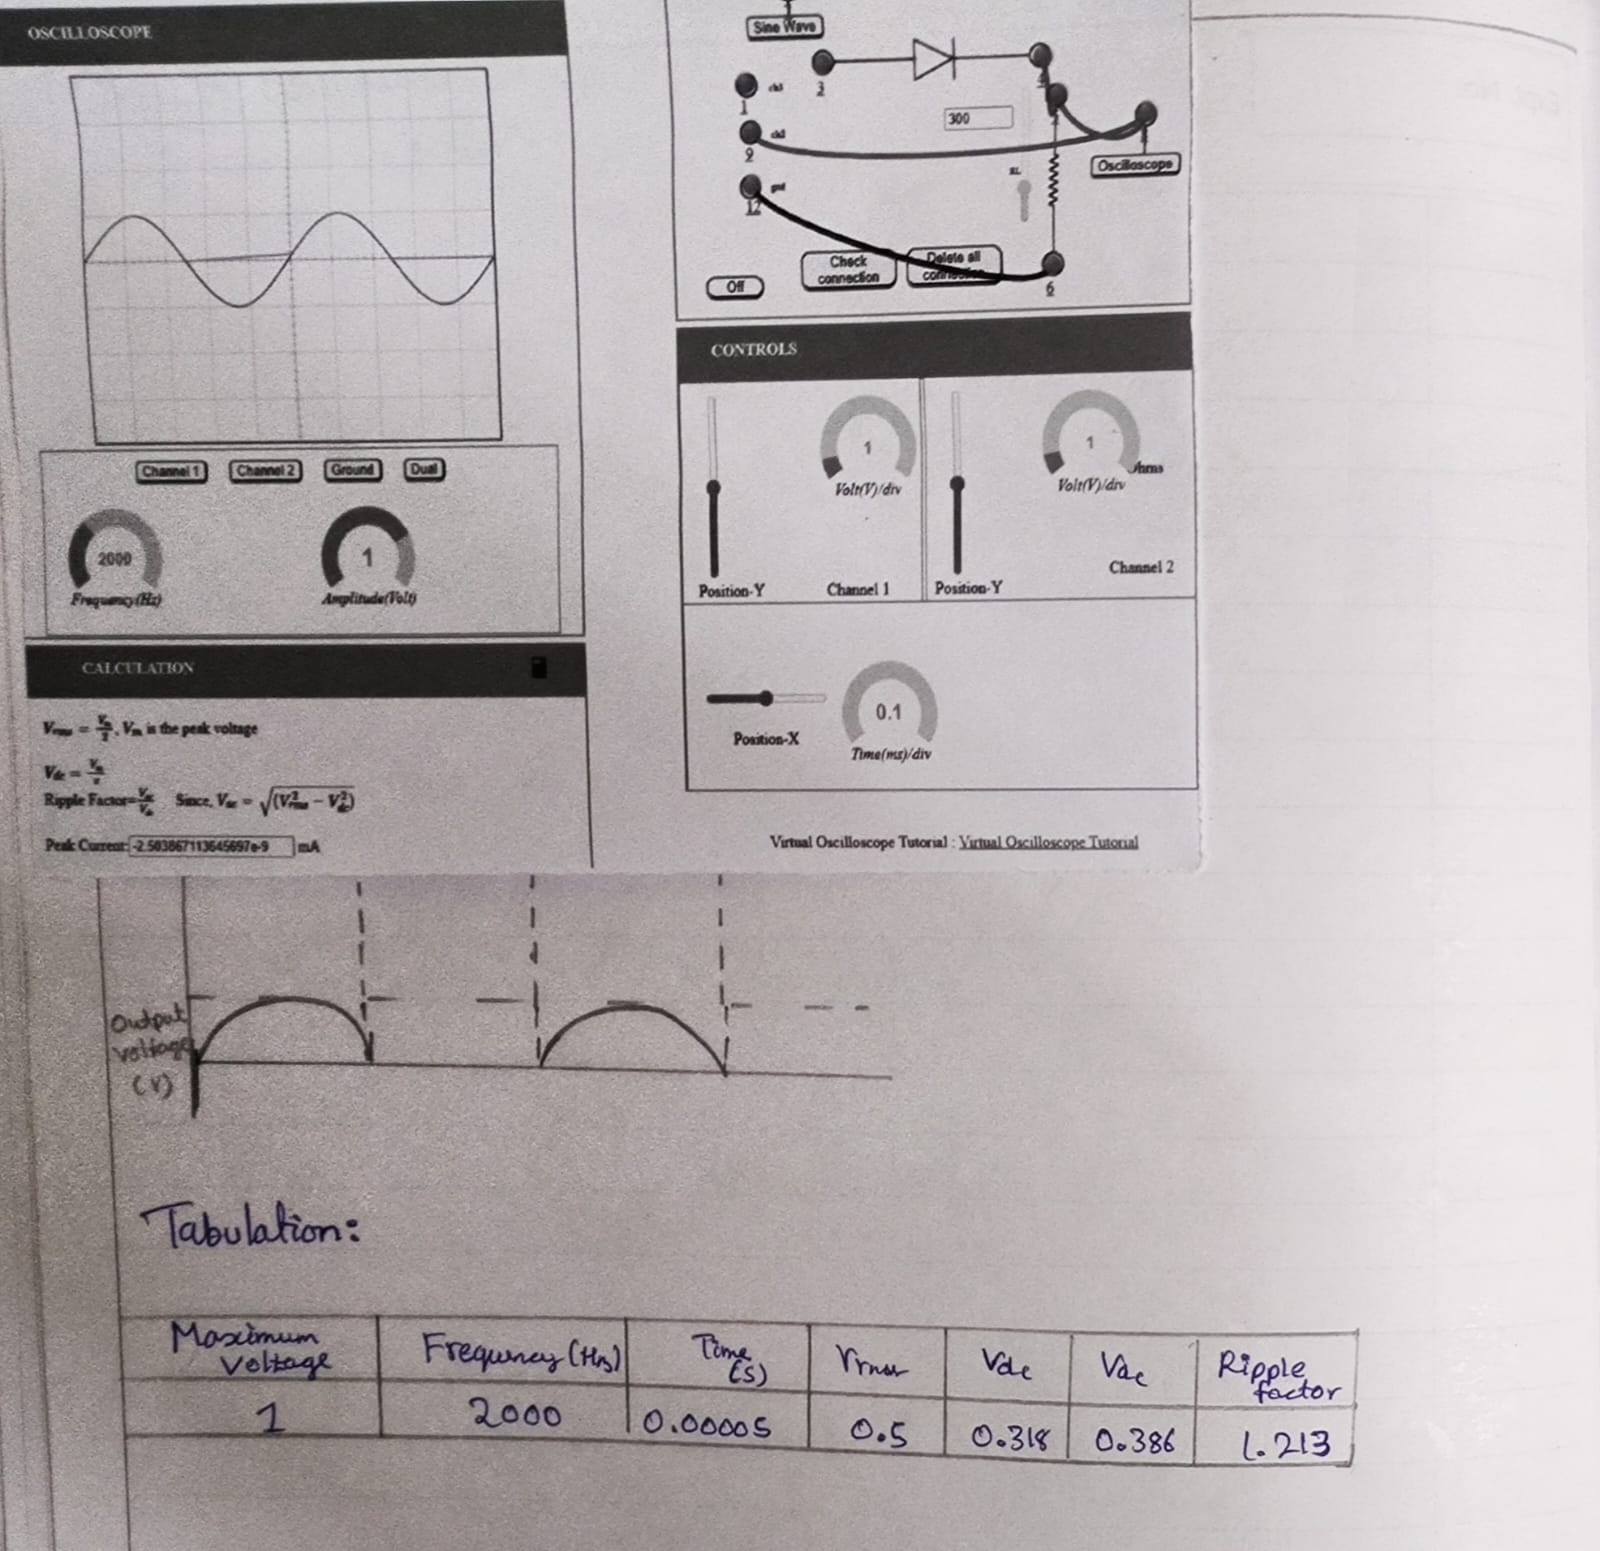 OSCILLOSCOPE
Channel 1 Channel 2 Ground Dual
2000
Frequency(Hz)
1
Amplitude(Volt)
CALCULATION
Vrms = Vm/2, Vm is the peak voltage
Vdc = Vm/π
Ripple Factor=Vac/Vdc Since, Vac = √(V²rms − V²dc)
Peak Current: -2.503867113645697e-9 mA
Sine Wave
3
4
1 ch1
9 ch2
12 gnd
300
RL
Oscilloscope
6
Off
Check connection
Delete all
CONTROLS
1
Volt(V)/div
Position-Y Channel 1
1
Volt(V)/div
Position-Y
Channel 2
Position-X
0.1
Time(ms)/div
Virtual Oscilloscope Tutorial : Virtual Oscilloscope Tutorial
Output
voltage
(V)
Tabulation:
Maximum Voltage Frequency (Hz) Time (s) Vrms Vdc Vac Ripple factor
1 2000 0.00005 0.5 0.318 0.386 1.213